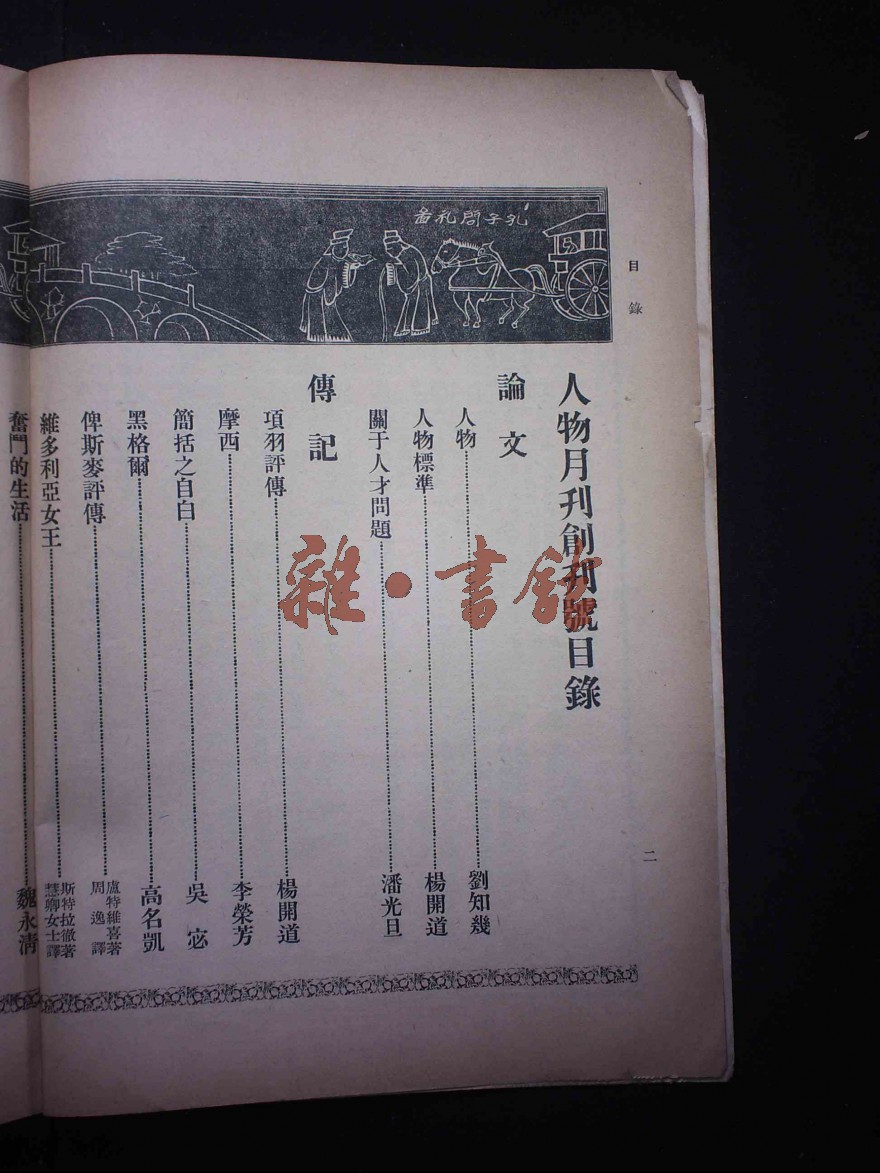 孔子問礼畵
目錄
二
人物月刊創刊號目錄
論文
人物……劉知幾
人物標準……楊開道
關于人才問題……潘光旦
傳記
項羽評傳……楊開道
摩西……李榮芳
簡括之自白……吳宓
黑格爾……高名凱
俾斯麥評傳……盧特維喜著
周逸譯
維多利亞女王……斯特拉徹著
慧卿女士譯
奮鬥的生活……魏永清
雜·書鈔